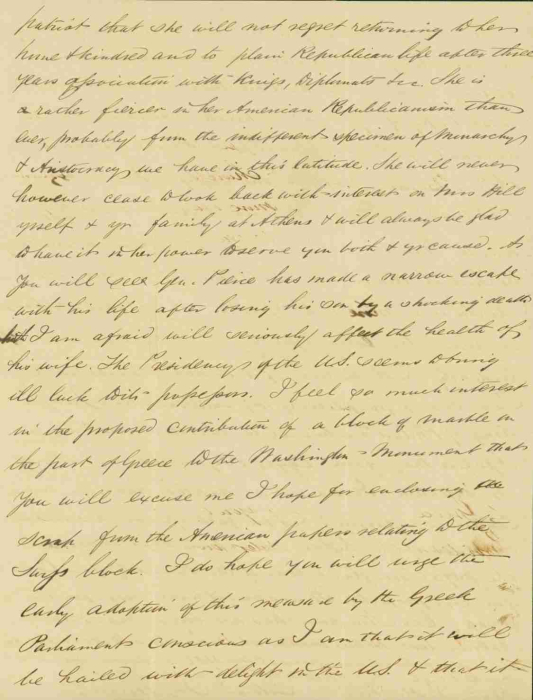 patriot that she will not regret returning to her
home & kindred and to plain Republican life after three
years association with Kings, Diplomats &c. She is
a rather fiercer in her American Republicanism than
ever, probably from the indifferent specimen of Monarchy
& Aristocracy we have in this latitude. She will never
however cease to look back with interest on Mrs Hill
yrself & yr family at Athens & will always be glad
to have it in her power to serve you both & yr cause. As
you will see Gen. Pierce has made a narrow escape
with his life after losing his son by a shocking death
I am afraid will seriously affect the health of
his wife. The Presidency of the U.S. seems to bring
ill luck to its possessors. I feel so much interest
in the proposed contribution of a block of marble on
the part of Greece to the Washington Monument that
you will excuse me I hope for enclosing the
scrap from the American papers relating to the
Swiss block. I do hope you will urge the
early adoption of this measure by the Greek
Parliament conscious as I am that it will
be hailed with delight in the U.S. & that it